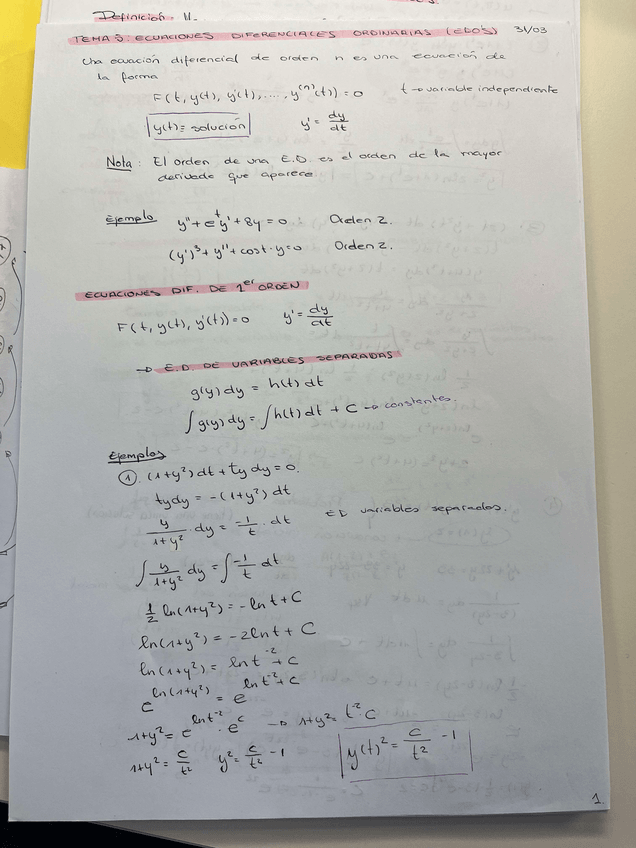 Definición. 11.
TEMA 5: ECUACIONES DIFERENCIALES ORDINARIAS (EDO'S) 31/03
Una ecuación diferencial de orden n es una ecuación de
la forma
F(t, y(t), y'(t), ..., y^(n)(t)) = 0 t → variable independiente
y(t) = solución y' = dy/dt
Nota: El orden de una E.D. es el orden de la mayor
derivada que aparece.
Ejemplo y'' + e^t y' + 8y = 0 Orden 2.
(y')^3 + y'' + cost · y = 0 Orden 2.
ECUACIONES DIF. DE 1er ORDEN
F(t, y(t), y'(t)) = 0 y' = dy/dt
→ E.D. DE VARIABLES SEPARADAS
g(y) dy = h(t) dt
∫ g(y) dy = ∫ h(t) dt + C → constantes.
Ejemplos
① (1+y²) dt + ty dy = 0.
ty dy = -(1+y²) dt
y/(1+y²) · dy = -1/t · dt ED variables separadas.
∫ y/(1+y²) dy = ∫ -1/t dt
1/2 ln(1+y²) = -ln t + C
ln(1+y²) = -2 ln t + C
ln(1+y²) = ln t^-2 + C
e^(ln(1+y²)) = e^(ln t^-2 + C)
1+y² = e^(ln t^-2) · e^C → 1+y² = t^-2 · C
1+y² = C/t² y² = C/t² - 1 y(t)² = C/t² - 1
1.